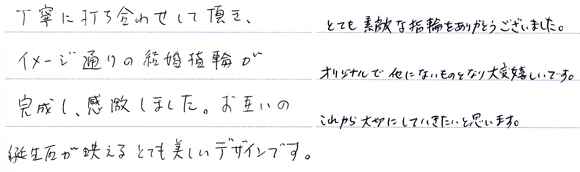 丁寧に打ち合わせして頂き、
イメージ通りの結婚指輪が
完成し、感激しました。お互いの
誕生石が映えるとても美しいデザインです。
とても素敵な指輪をありがとうございました。
オリジナルで他にないものとなり大変嬉しいです。
これから大切にしていきたいと思います。